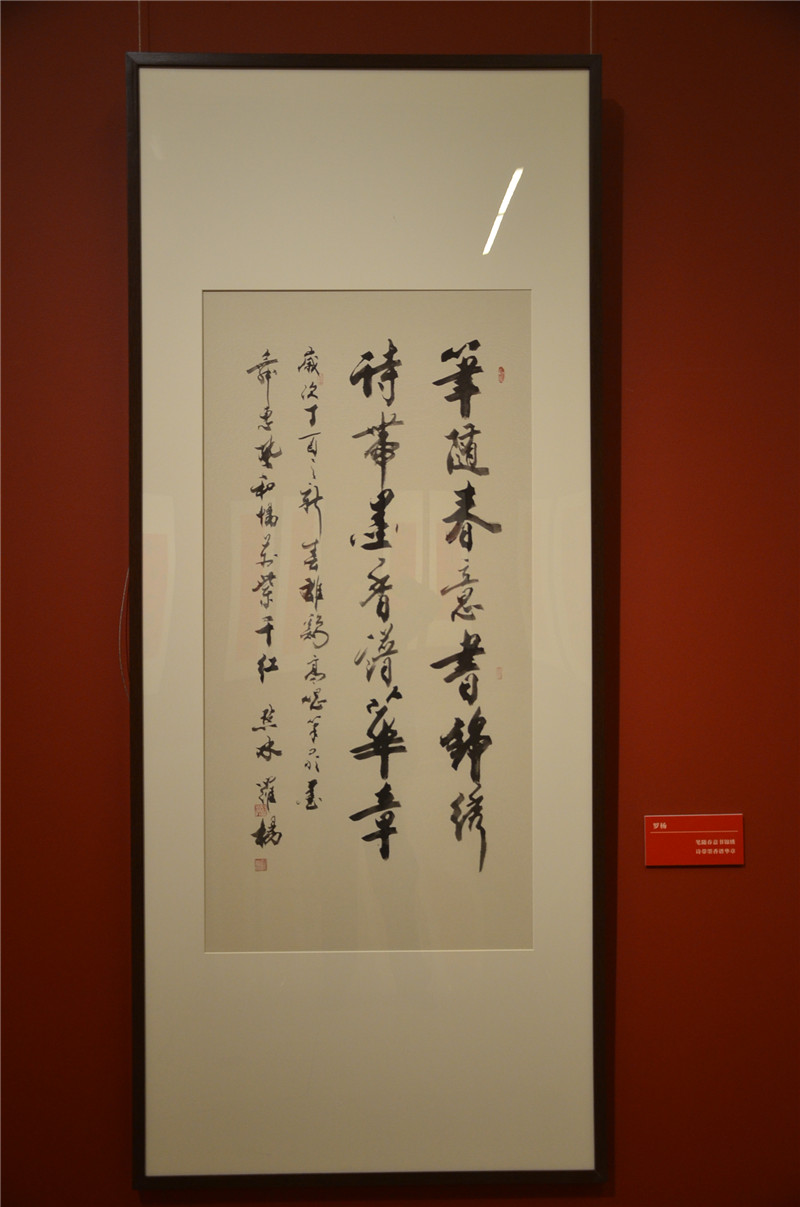 筆隨春意書錦绣
诗帶墨香譜華章
歲次丁酉之新春雄鷄高唱筆飛墨
舞惠風和暢萬紫千红 羅楊
罗杨
笔随春意书锦绣
诗带墨香谱华章